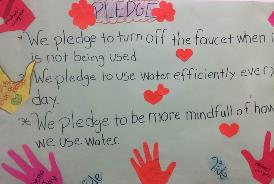 PLEDGE
* We pledge to turn off the faucet when i
is not being used
We pledge to use water efficiently every
day.
* We pledge to be more mindfull of how
we use water.